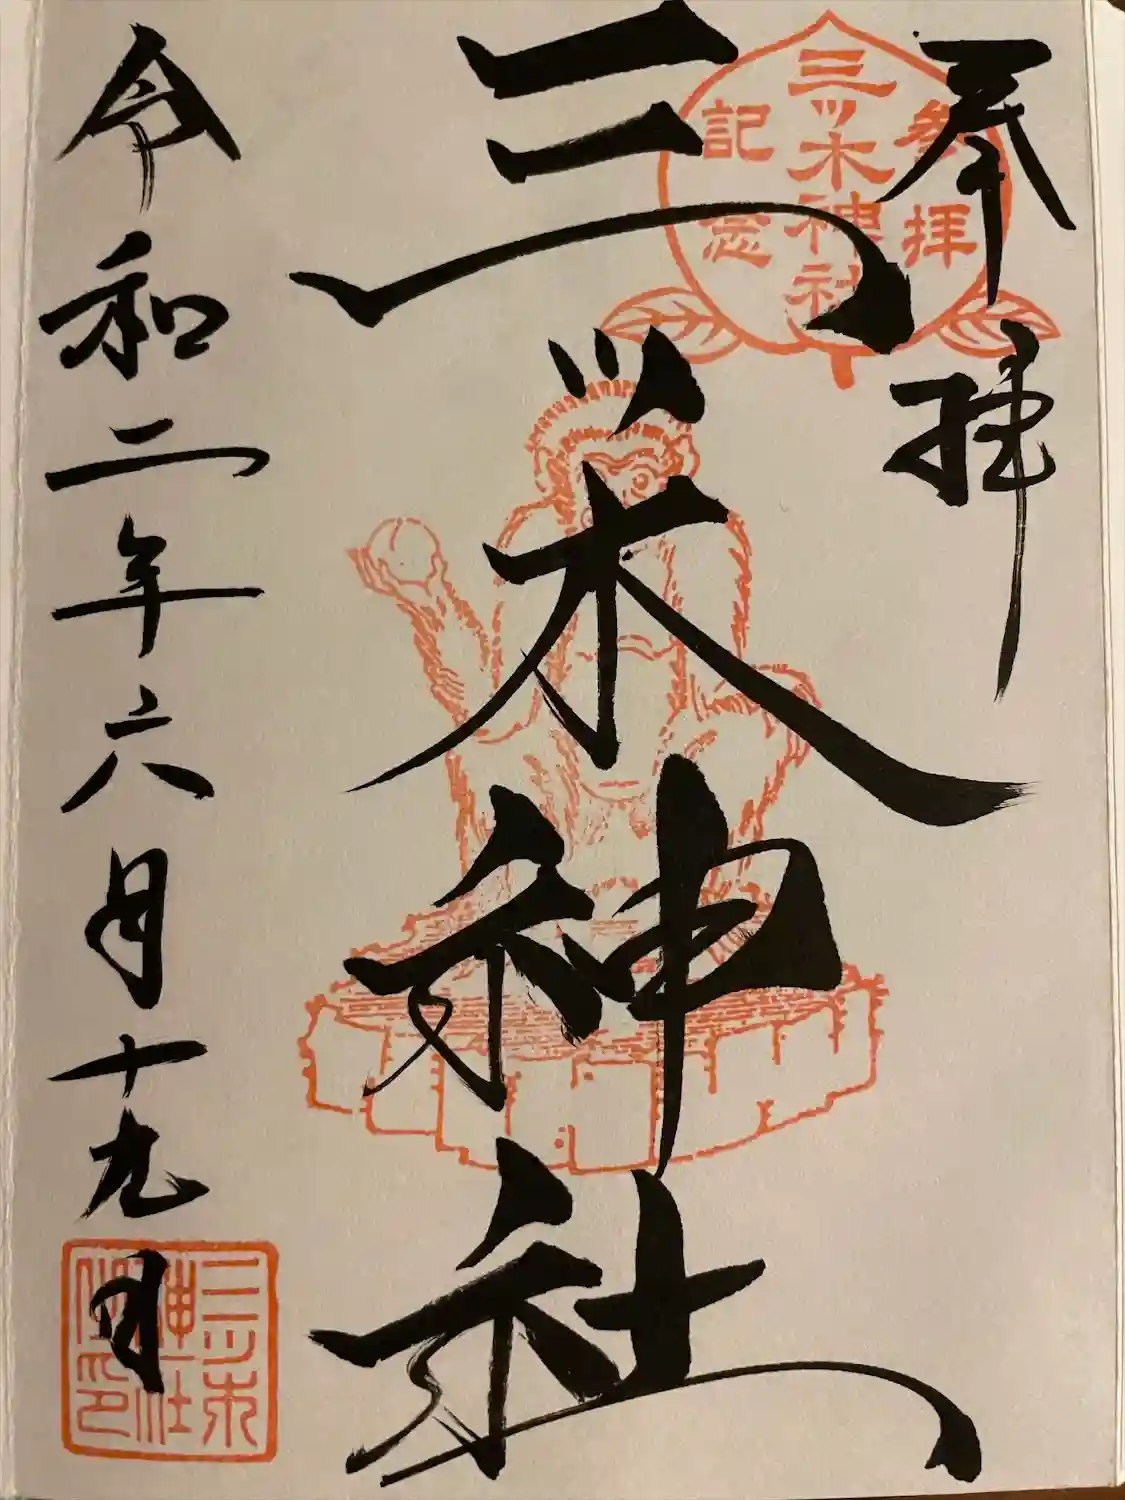 奉拝
参拝
三ッ木神社
記念
三ッ木神社
令和二年六月十九日
三ツ木
神社
之印